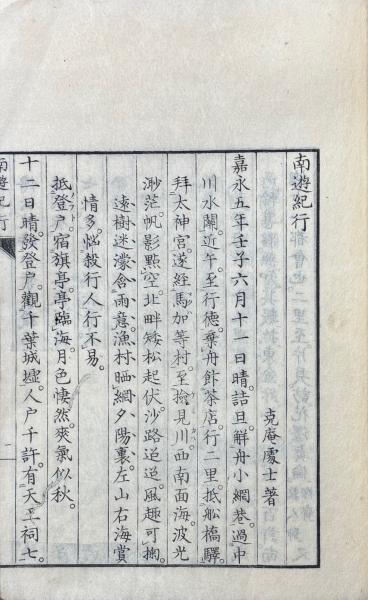 南遊紀行
克庵處士著
嘉永五年壬子六月十一日晴。詰旦。解舟小網巷。過中
川水關。近午。至行德。棄舟飰茶店。行二里。抵船橋驛。
拜太神宮。遂經馬加等村。至撿見川。西南面海。波光
渺茫。帆影點空。北畔矮松起伏。沙路迢迢。風趣可掬。
遠樹迷濛含雨意。漁村晒網夕陽裏。左山右海賞
情多。惱殺行人行不易。
抵登戶。宿旗亭。亭臨海。月色悽然。爽氣似秋。
十二日晴。發登戶。觀千葉城墟。人戶千許。有天王祠。七
南遊紀行
一